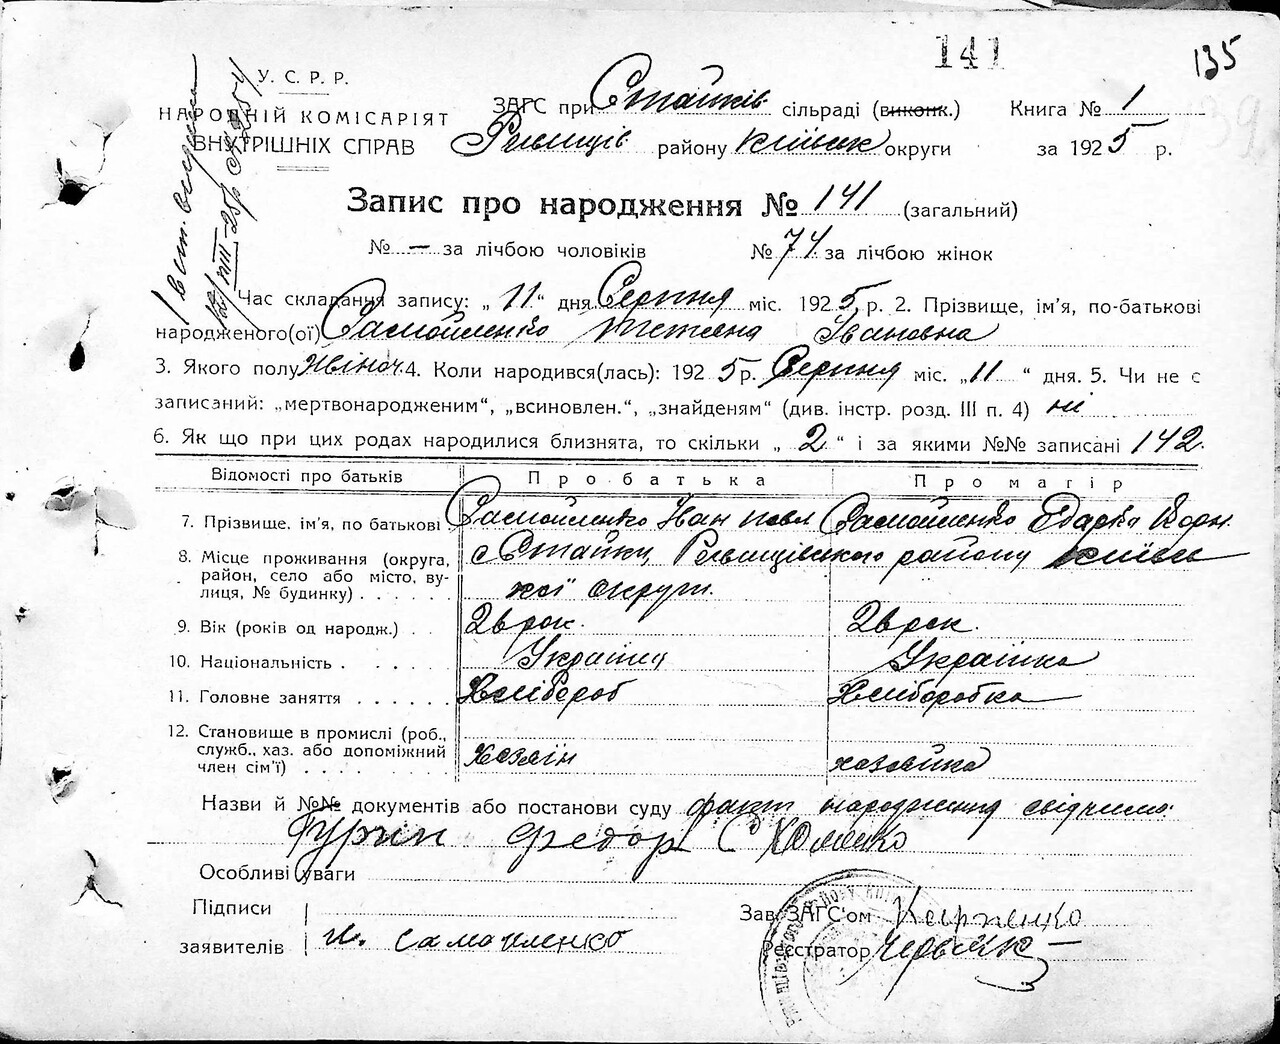 141
135
У. С. Р. Р.
НАРОДНІЙ КОМІСАРІЯТ
ВНУТРІШНІХ СПРАВ
ЗАГС при Стайків сільраді (виконк.) Книга № 1
Ржищів району Київськ округи за 1925 р.
Запис про народження № 141 (загальний)
№ — за лічбою чоловіків № 74 за лічбою жінок
Час складання запису: „ 11 “ дня Серпня міс. 1925 р. 2. Прізвище, ім'я, по-батькові
народженого(ої) Самойленко Тетяна Івановна
3. Якого полу Жіноч. 4. Коли народився(лась): 1925 р. Серпня міс. „ 11 “ дня. 5. Чи не є
записаний: „мертвонародженим“, „всиновлен.“, „знайденям“ (див. інстр. розд. III п. 4) ні
6. Як що при цих родах народилися близнята, то скільки „ 2 “ і за якими №№ записані 142.
Відомості про батьків Про батька Про магір
7. Прізвище. ім'я, по батькові Самойленко Іван Павл Самойленко Одарка Корн.
8. Місце проживання (округа, с Стайки, Ржищівського району Київсь
район, село або місто, ву-
лиця, № будинку) кої округи.
9. Вік (років од народж.) 28 рок. 28 рок.
10. Національність Українц Українка
11. Головне заняття Хлібороб Хліборобка
12. Становище в промислі (роб.,
служб., хаз. або допоміжний
член сім'ї) хазяїн хазяйка
Назви й №№ документів або постанови суду факт народження свідчимо:
Гурин Федор С Хоменко
Особливі уваги
Підписи
заявителів И. Самойленко
Зав. ЗАГС'ом Карпенко
Реєстратор Черв'як